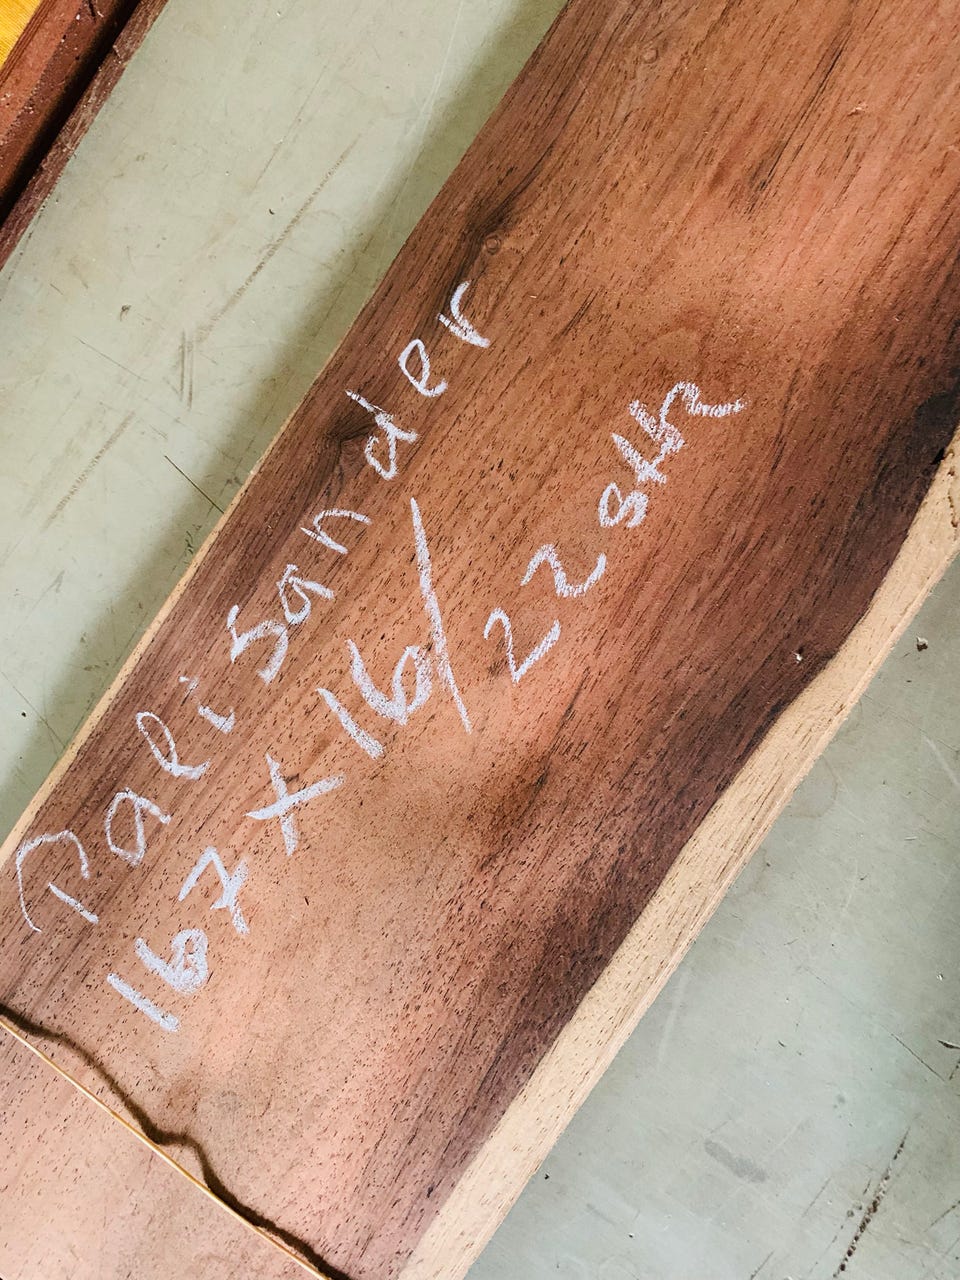 Palisander
167 X 16/22 Stk